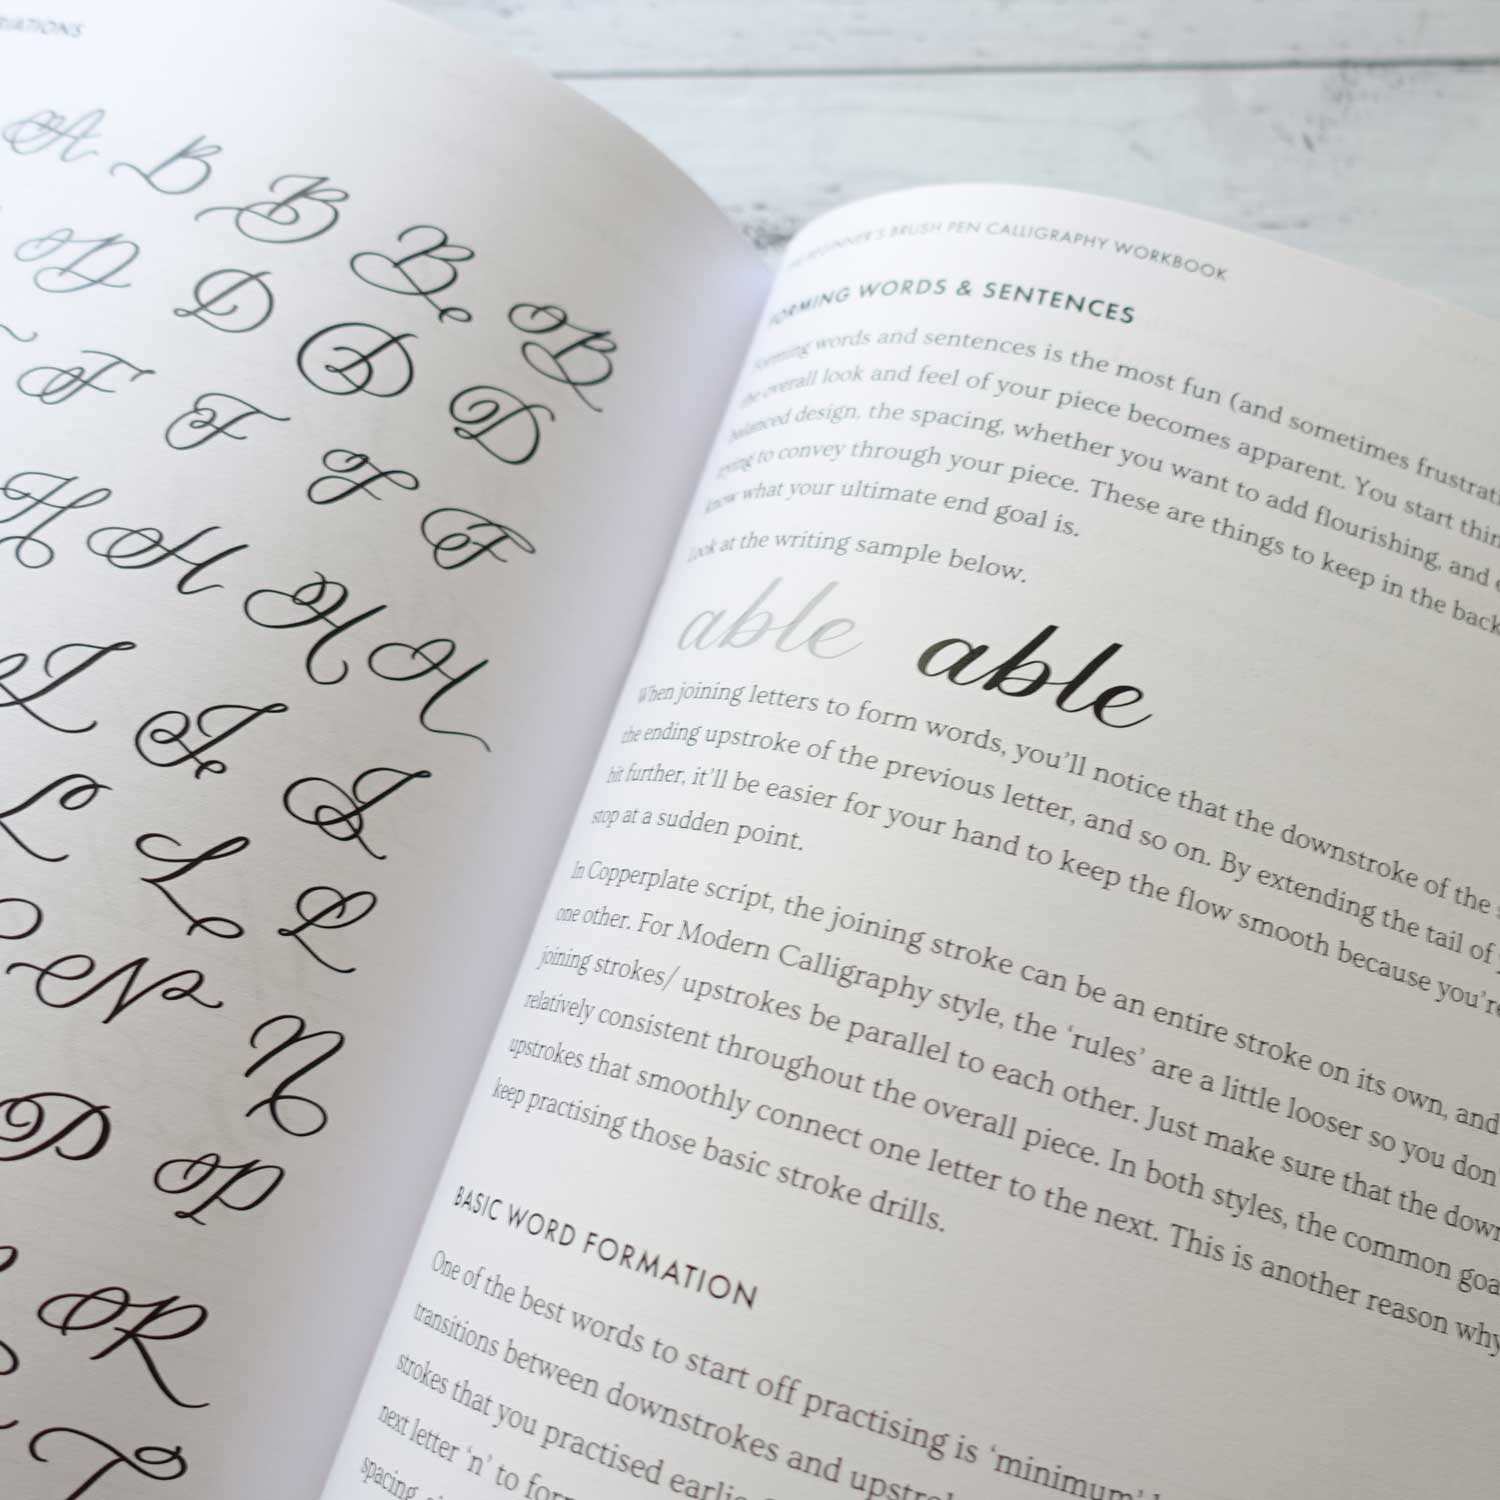 A B B B B
D D D D
F F F F
H H H H
I I I
L L L
N N
P P
R
T
BEGINNER'S BRUSH PEN CALLIGRAPHY WORKBOOK
FORMING WORDS & SENTENCES
Forming words and sentences is the most fun (and sometimes
the overall look and feel of your piece becomes apparent. You start
balanced design, the spacing, whether you want to add flourishing, and
trying to convey through your piece. These are things to keep in the back
know what your ultimate end goal is.
Look at the writing sample below.
able able
When joining letters to form words, you'll notice that the downstroke of the
the ending upstroke of the previous letter, and so on. By extending the tail of
bit further, it'll be easier for your hand to keep the flow smooth because you're
stop at a sudden point.
In Copperplate script, the joining stroke can be an entire stroke on its own, and
one other. For Modern Calligraphy style, the 'rules' are a little looser so you don
joining strokes/ upstrokes be parallel to each other. Just make sure that the down
relatively consistent throughout the overall piece. In both styles, the common goa
upstrokes that smoothly connect one letter to the next. This is another reason why
keep practising those basic stroke drills.
BASIC WORD FORMATION
One of the best words to start off practising is 'minimum'
transitions between downstrokes and
strokes that you practised
next letter 'n' to
spacing